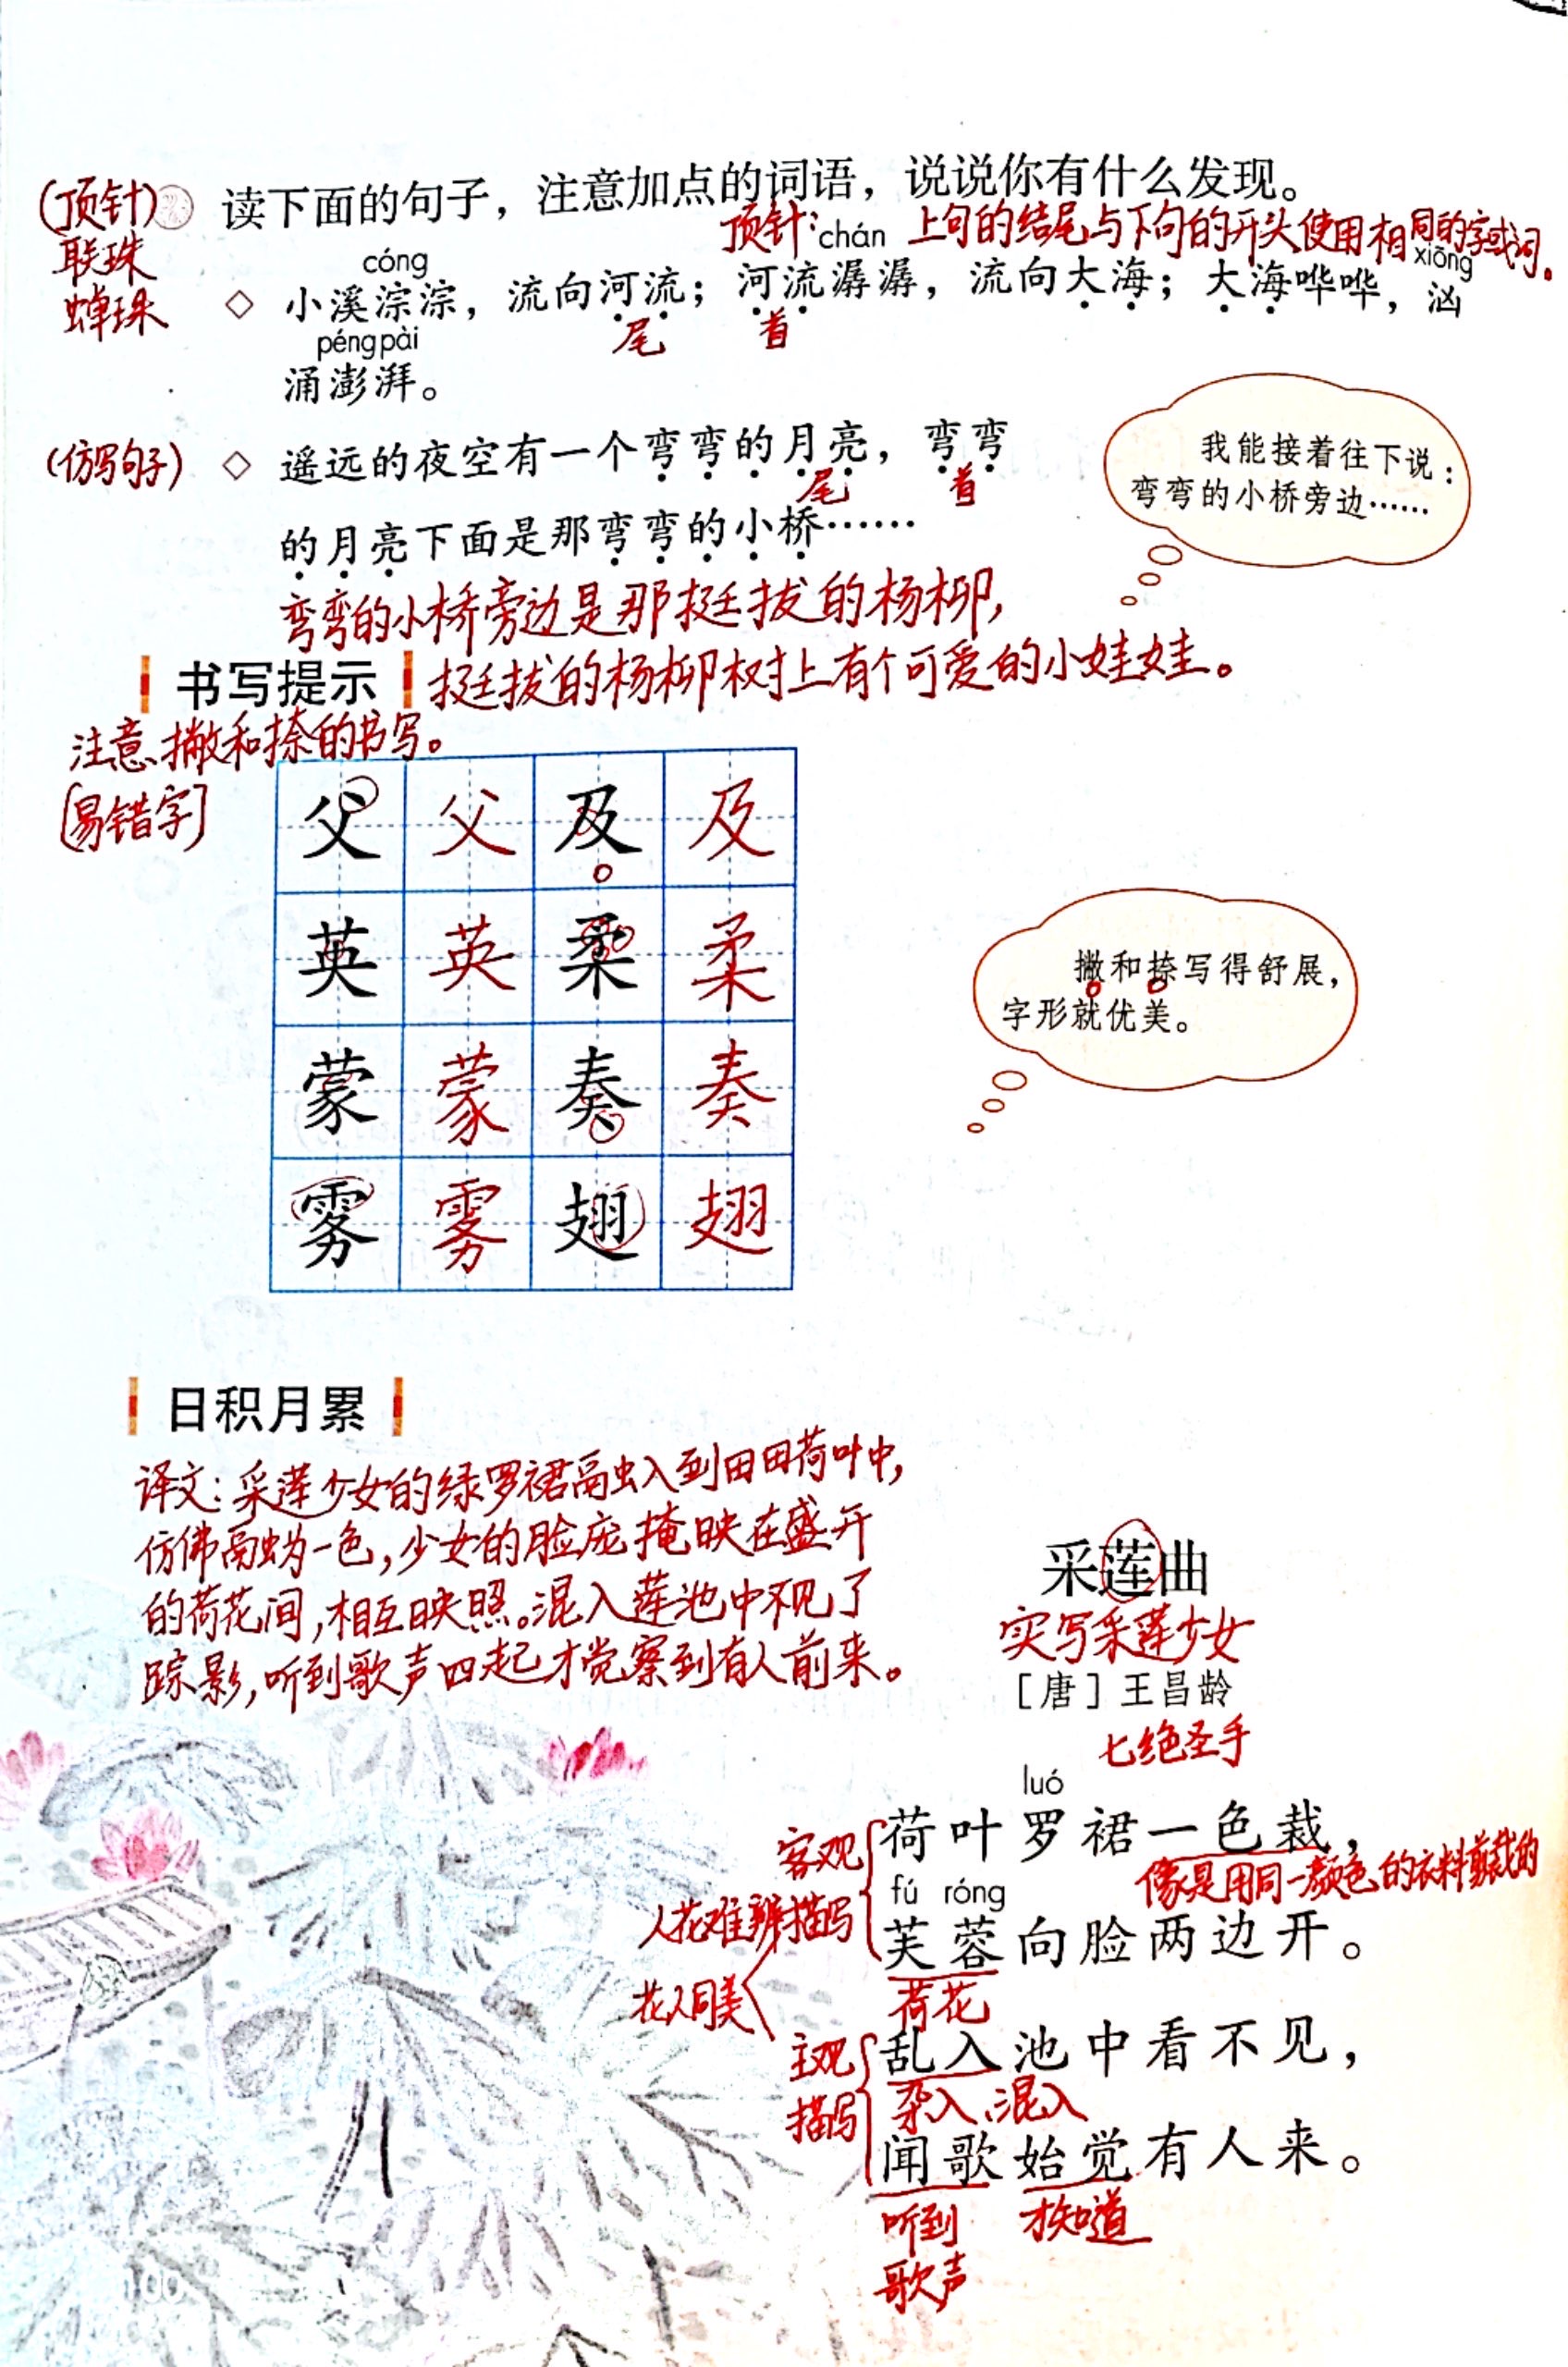 (顶针) 读下面的句子，注意加点的词语，说说你有什么发现。
联珠
蝉珠
顶针: 上句的结尾与下句的开头使用相同的字或词。
cóng chán xiōng
◇ 小溪淙淙，流向河流；河流潺潺，流向大海；大海哗哗，汹
尾 首
péng pài
涌澎湃。
(仿写句子) ◇ 遥远的夜空有一个弯弯的月亮，弯弯
尾 首
的月亮下面是那弯弯的小桥……
我能接着往下说：
弯弯的小桥旁边……
弯弯的小桥旁边是那挺拔的杨柳,
挺拔的杨柳树上有个可爱的小娃娃。
书写提示
注意撇和捺的书写。
[易错字]
父 父 及 及
英 英 柔 柔
蒙 蒙 奏 奏
雾 雾 翅 翅
撇和捺写得舒展，
字形就优美。
日积月累
译文:采莲少女的绿罗裙融入到田田荷叶中,
仿佛融为一色,少女的脸庞掩映在盛开
的荷花间,相互映照。混入莲池中不见了
踪影,听到歌声四起才觉察到有人前来。
采莲曲
实写采莲少女
［唐］王昌龄
七绝圣手
luó
荷叶罗裙一色裁，
像是用同一颜色的衣料剪裁的
客观
描写
人花难辨
花人同美
fú róng
芙蓉向脸两边开。
荷花
主观
描写
乱入池中看不见，
杂入、混入
闻歌始觉有人来。
听到 才知道
歌声
100